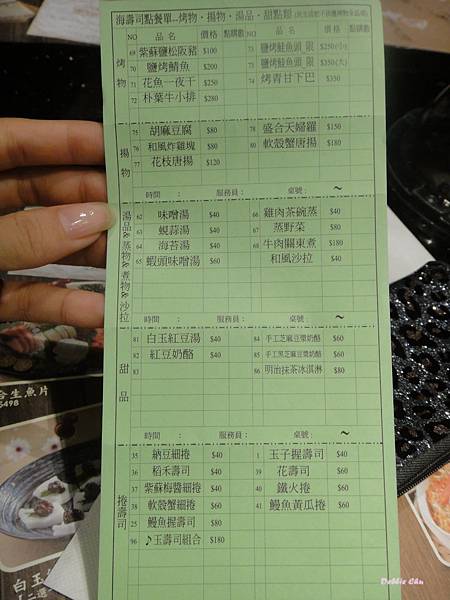 海壽司點餐單...烤物、揚物、湯品、甜點類
NO 品名 價格 點購數 NO 品名 價格 點購數
烤物
69 紫蘇鹽松阪豬 $100 73 鹽烤鮭魚頭 限 $250(小)
70 鹽烤鯖魚 $200 73 鹽烤鮭魚頭 限 $350(大)
71 花魚一夜干 $250 74 烤青甘下巴 $350
72 朴葉牛小排 $280
揚物
75 胡麻豆腐 $80 78 盛合天婦羅 $150
76 和風炸雞塊 $80 80 軟殼蟹唐揚 $180
77 花枝唐揚 $120
時間 : 服務員: 桌號: ~
湯品&蒸物&煮物&沙拉
62 味噌湯 $40 66 雞肉茶碗蒸 $40
63 蜆蒜湯 $40 67 蒸野菜 $80
64 海苔湯 $40 68 牛肉關東煮 $180
65 蝦頭味噌湯 $60 和風沙拉 $40
時間 : 服務員: 桌號: ~
甜品
81 白玉紅豆湯 $40 84 手工芝麻豆漿奶酪 $60
82 紅豆奶酪 $40 85 手工黑芝麻豆漿奶酪 $60
83 86 明治抹茶冰淇淋 $80
時間 : 服務員: 桌號: ~
捲壽司
35 納豆細捲 $40 1 玉子握壽司 $40
36 稻禾壽司 $40 39 花壽司 $60
37 紫蘇梅醬細捲 $40 40 鐵火捲 $60
38 軟殼蟹細捲 $60 41 鰻魚黃瓜捲 $60
25 鰻魚握壽司 $80
96 ♪玉壽司組合 $180
合生魚片
$498
白玉
Debbie Chu